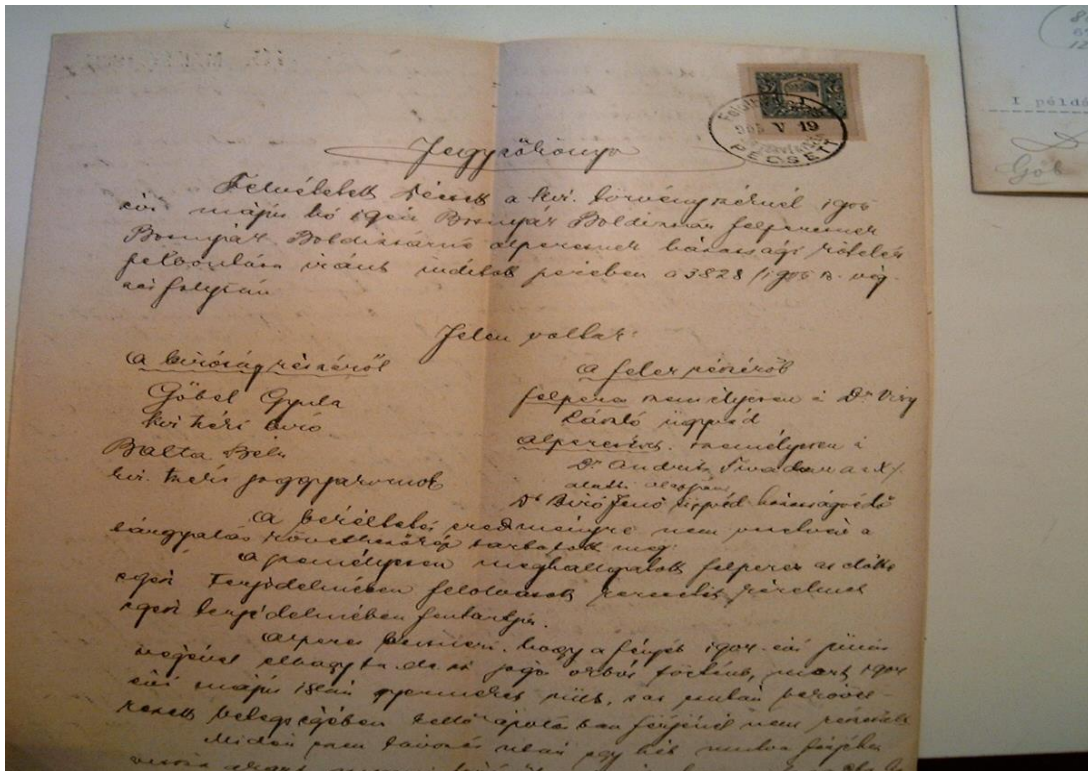 Jegyzőkönyv
Felvétetett Pécsett a kir. törvényszéknél 1905
évi május hó 19én Bosnyák Boldizsár felperesnek
Bosnyák Boldizsárné alperesnek házassági kötelék
felbontása iránt indított perében a 3828/1905 B. vég-
zés folytán
Jelen voltak:
a bíróság részéről
Göbel Gyula
kir. tszéki bíró
Balta Béla
kir. tszéki joggyakornok
a felek részéről
felperes személyesen i Dr
László ügyvéd
alperesnő személyesen i
Dr Andrits Tivadar a x/.
alatti
Dr Bíró Jenő ügyvéd házasságvédő
A békéltetés eredményre nem vezetvén a
tárgyalás következőkép tartatott meg.
A személyesen meghallgatott felperes az előtte
egész terjedelmében felolvasott kereseti kérelmet
egész terjedelmében fentartja.
Alperes beismeri, hogy a férjét 1904 évi június
végével elhagyta de ez jogos okból történt, mert 1904
évi május gyermeket szült, s az ezután
betegségében kellő ápolásban férjénél nem részesült
Midőn ezen távozás után egy hét mulva férjéhez
PECSETT
905 V 19
1
I példá
Göb